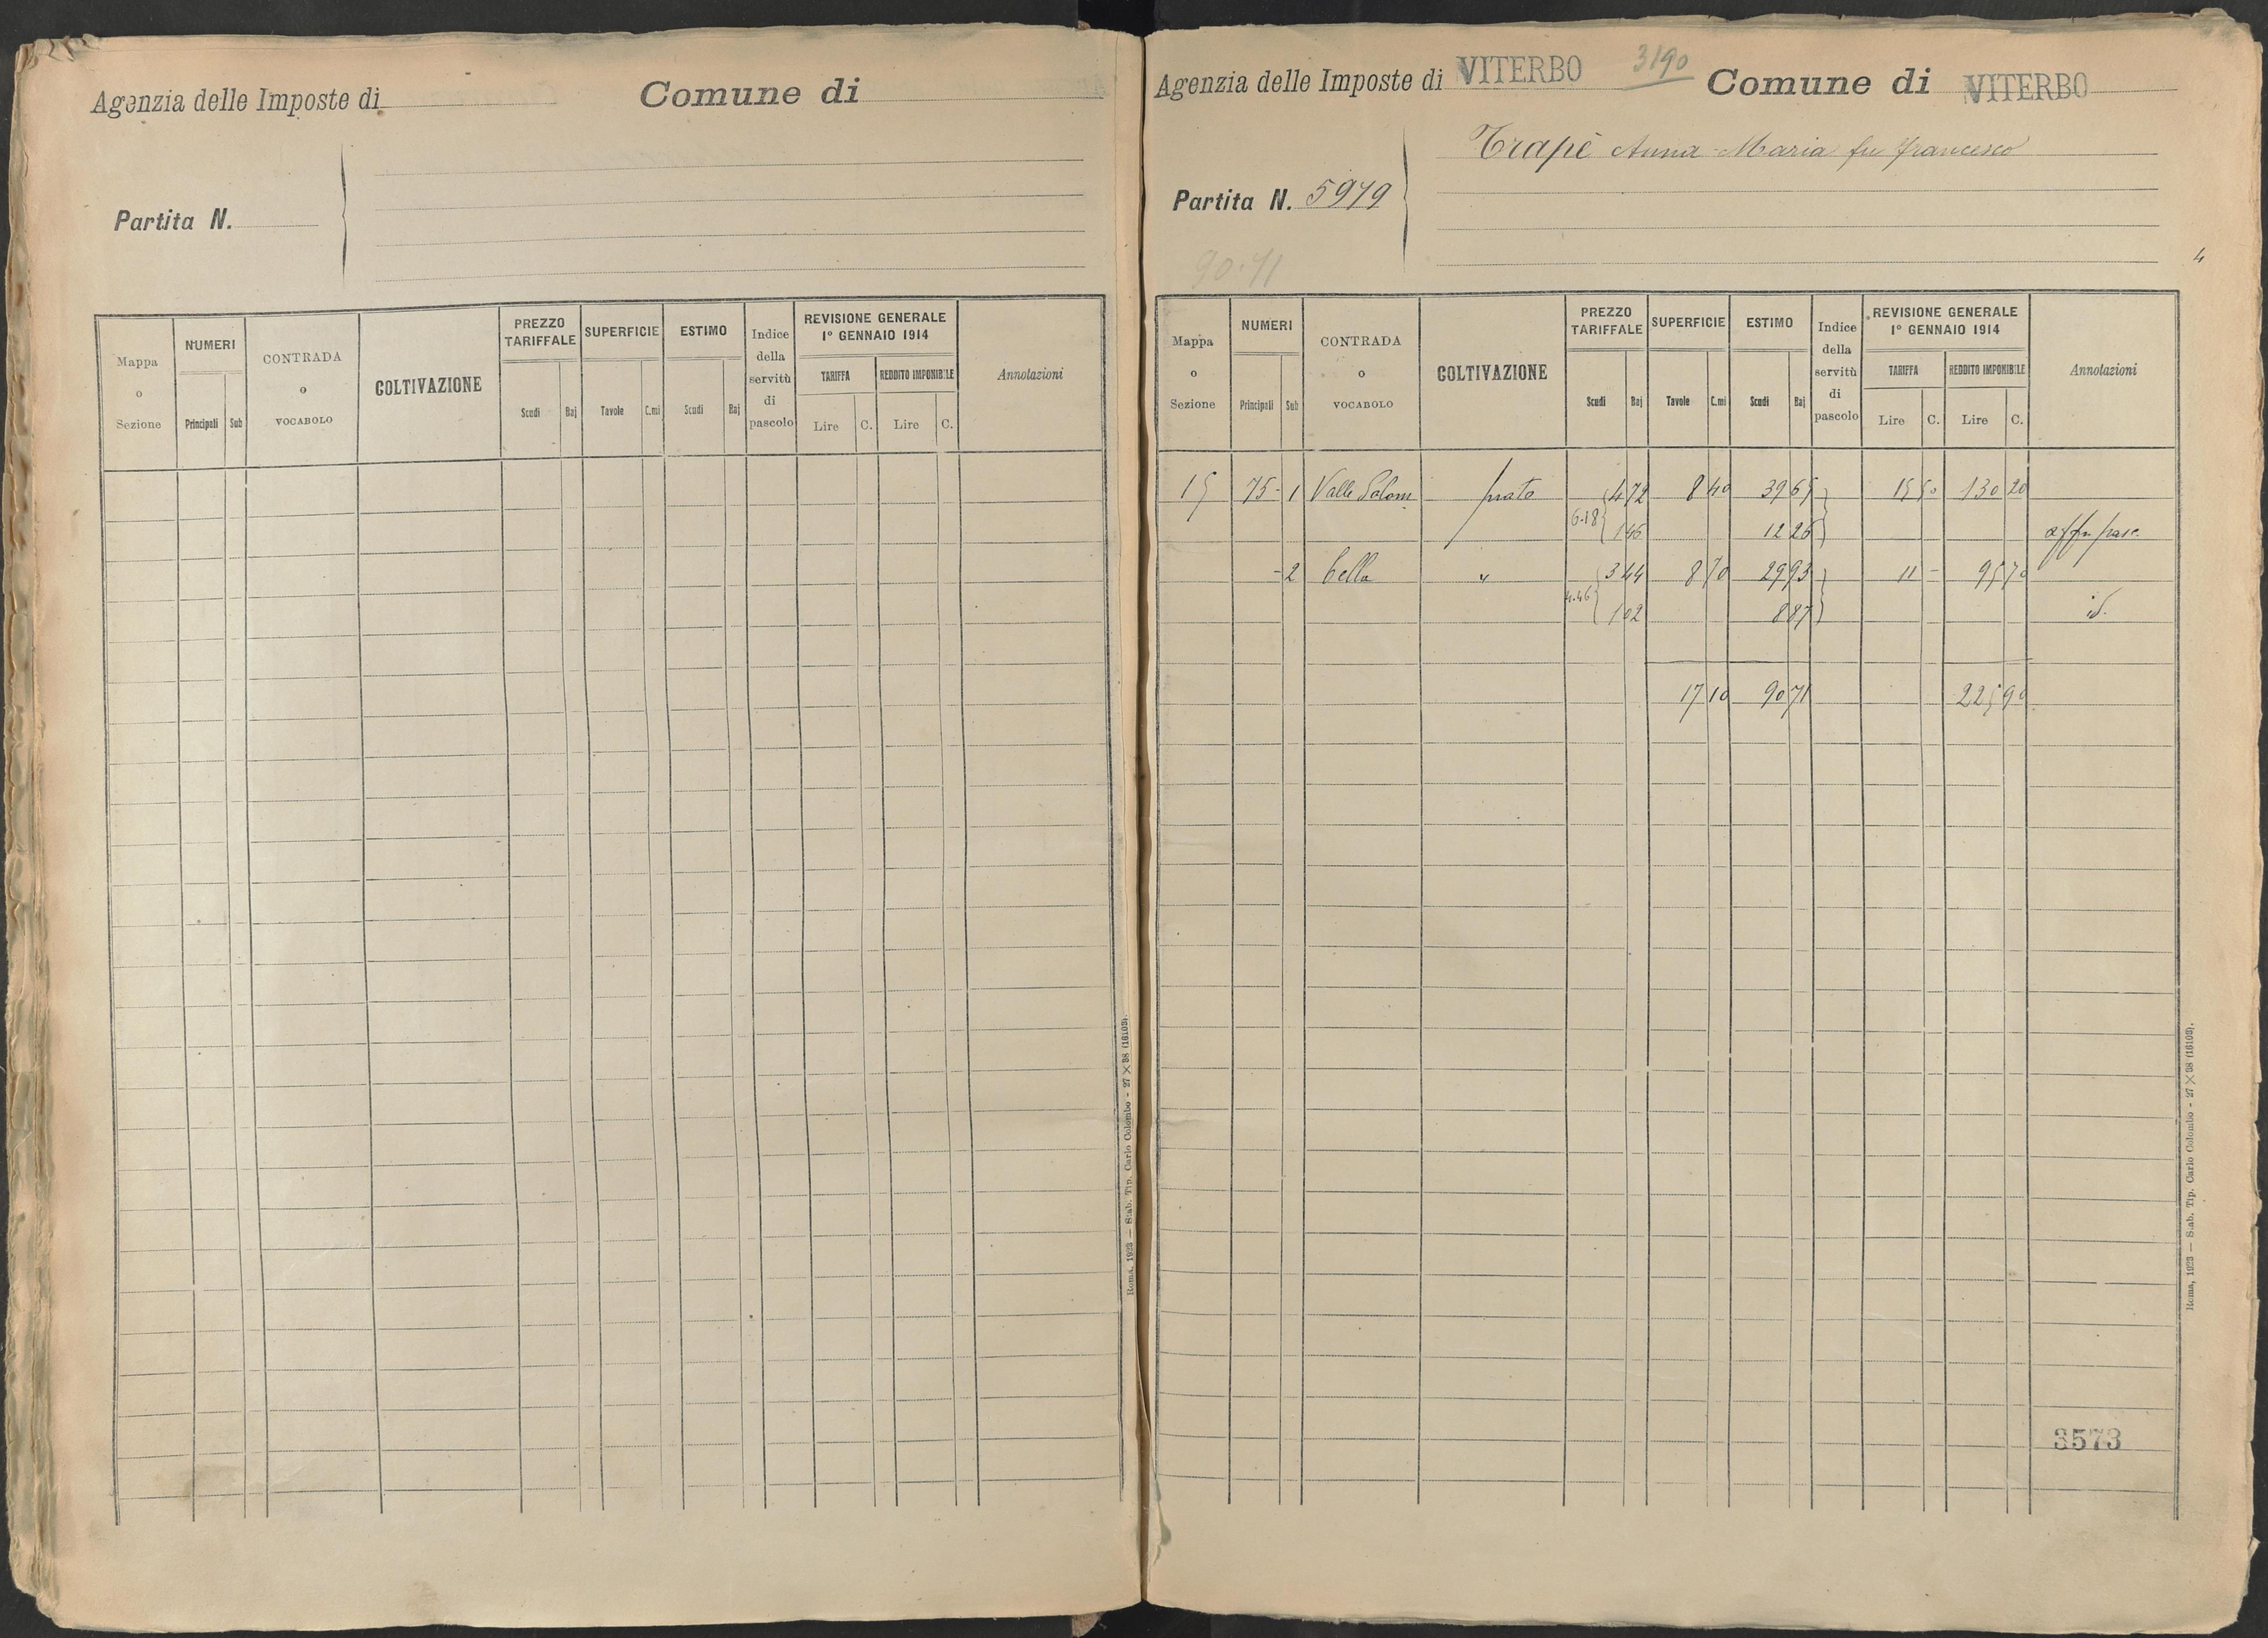 Agenzia delle Imposte di Comune di
Partita N.
Mappa o Sezione | NUMERI Principali Sub | CONTRADA o VOCABOLO | COLTIVAZIONE | PREZZO TARIFFALE Scudi Baj | SUPERFICIE Tavole C.mi | ESTIMO Scudi Baj | Indice della servitù di pascolo | REVISIONE GENERALE 1° GENNAIO 1914 TARIFFA Lire C. REDDITO IMPONIBILE Lire C. | Annotazioni
Roma, 1923 — Stab. Tip. Carlo Colombo - 27 × 38 (16103).
Agenzia delle Imposte di VITERBO 3190 Comune di VITERBO
Trapè Anna Maria fu Francesco
Partita N. 5979
4
90.71
Mappa o Sezione | NUMERI Principali Sub | CONTRADA o VOCABOLO | COLTIVAZIONE | PREZZO TARIFFALE Scudi Baj | SUPERFICIE Tavole C.mi | ESTIMO Scudi Baj | Indice della servitù di pascolo | REVISIONE GENERALE 1° GENNAIO 1914 TARIFFA Lire C. REDDITO IMPONIBILE Lire C. | Annotazioni
15 75 - 1 Valle Salom prato 4 72 8 40 39 65 15 50 130 20
6.18 1 46 12 26 aff pasc.
- 2 bella " 3 44 8 70 29 93 11 - 95 70
4.46 1 02 8 87 id.
17 10 90 71 225 90
3573
Roma, 1923 — Stab. Tip. Carlo Colombo - 27 × 38 (16103).